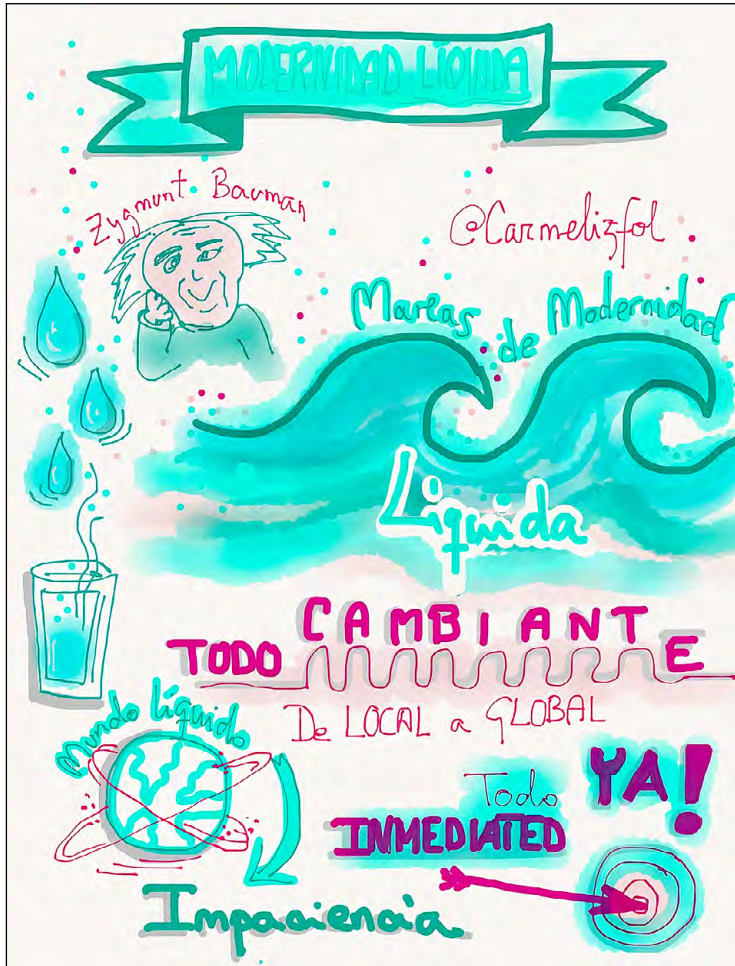 MODERNIDAD LÍQUIDA
Zygmunt Bauman
@Carmelizfol
Mareas de Modernidad
Líquida
TODO CAMBIANTE
De LOCAL a GLOBAL
Mundo líquido
Todo
INMEDIATED
YA!
Impaciencia